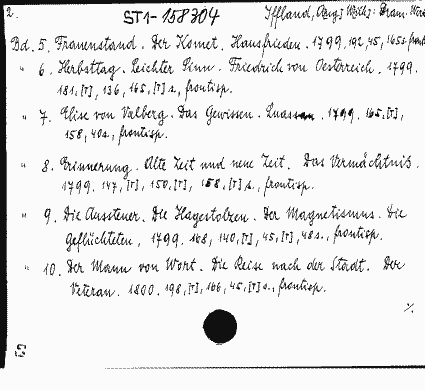 2. ST1-158304 Iffland, Aug. Wilh.: Dram. Werke
Bd. 5. Frauenstand. Der Komet. Hausfrieden. 1799. 192, 45, 165 s. front
" 6. Herbsttag. Leichter Sinn. Friedrich von Oesterreich. 1799.
181, [1], 136, 165, [1] s., frontisp.
" 7. Elise von Valberg. Das Gewissen. Luassan. 1799. 165, [1],
158, 40 s., frontisp.
" 8. Erinnerung. Alte Zeit und neue Zeit. Das Vermächtniß.
1799. 147, [1], 150, [1], 158, [1] s., frontisp.
" 9. Die Aussteuer. Die Hagestolzen. Der Magnetismus. Die
Geflüchteten, 1799. 168, 140, [1], 45, [1], 48 s., frontisp.
" 10. Der Mann von Wort. Die Reise nach der Stadt. Der
Veteran. 1800. 198, [1], 166, 45, [1] s., frontisp.
./.